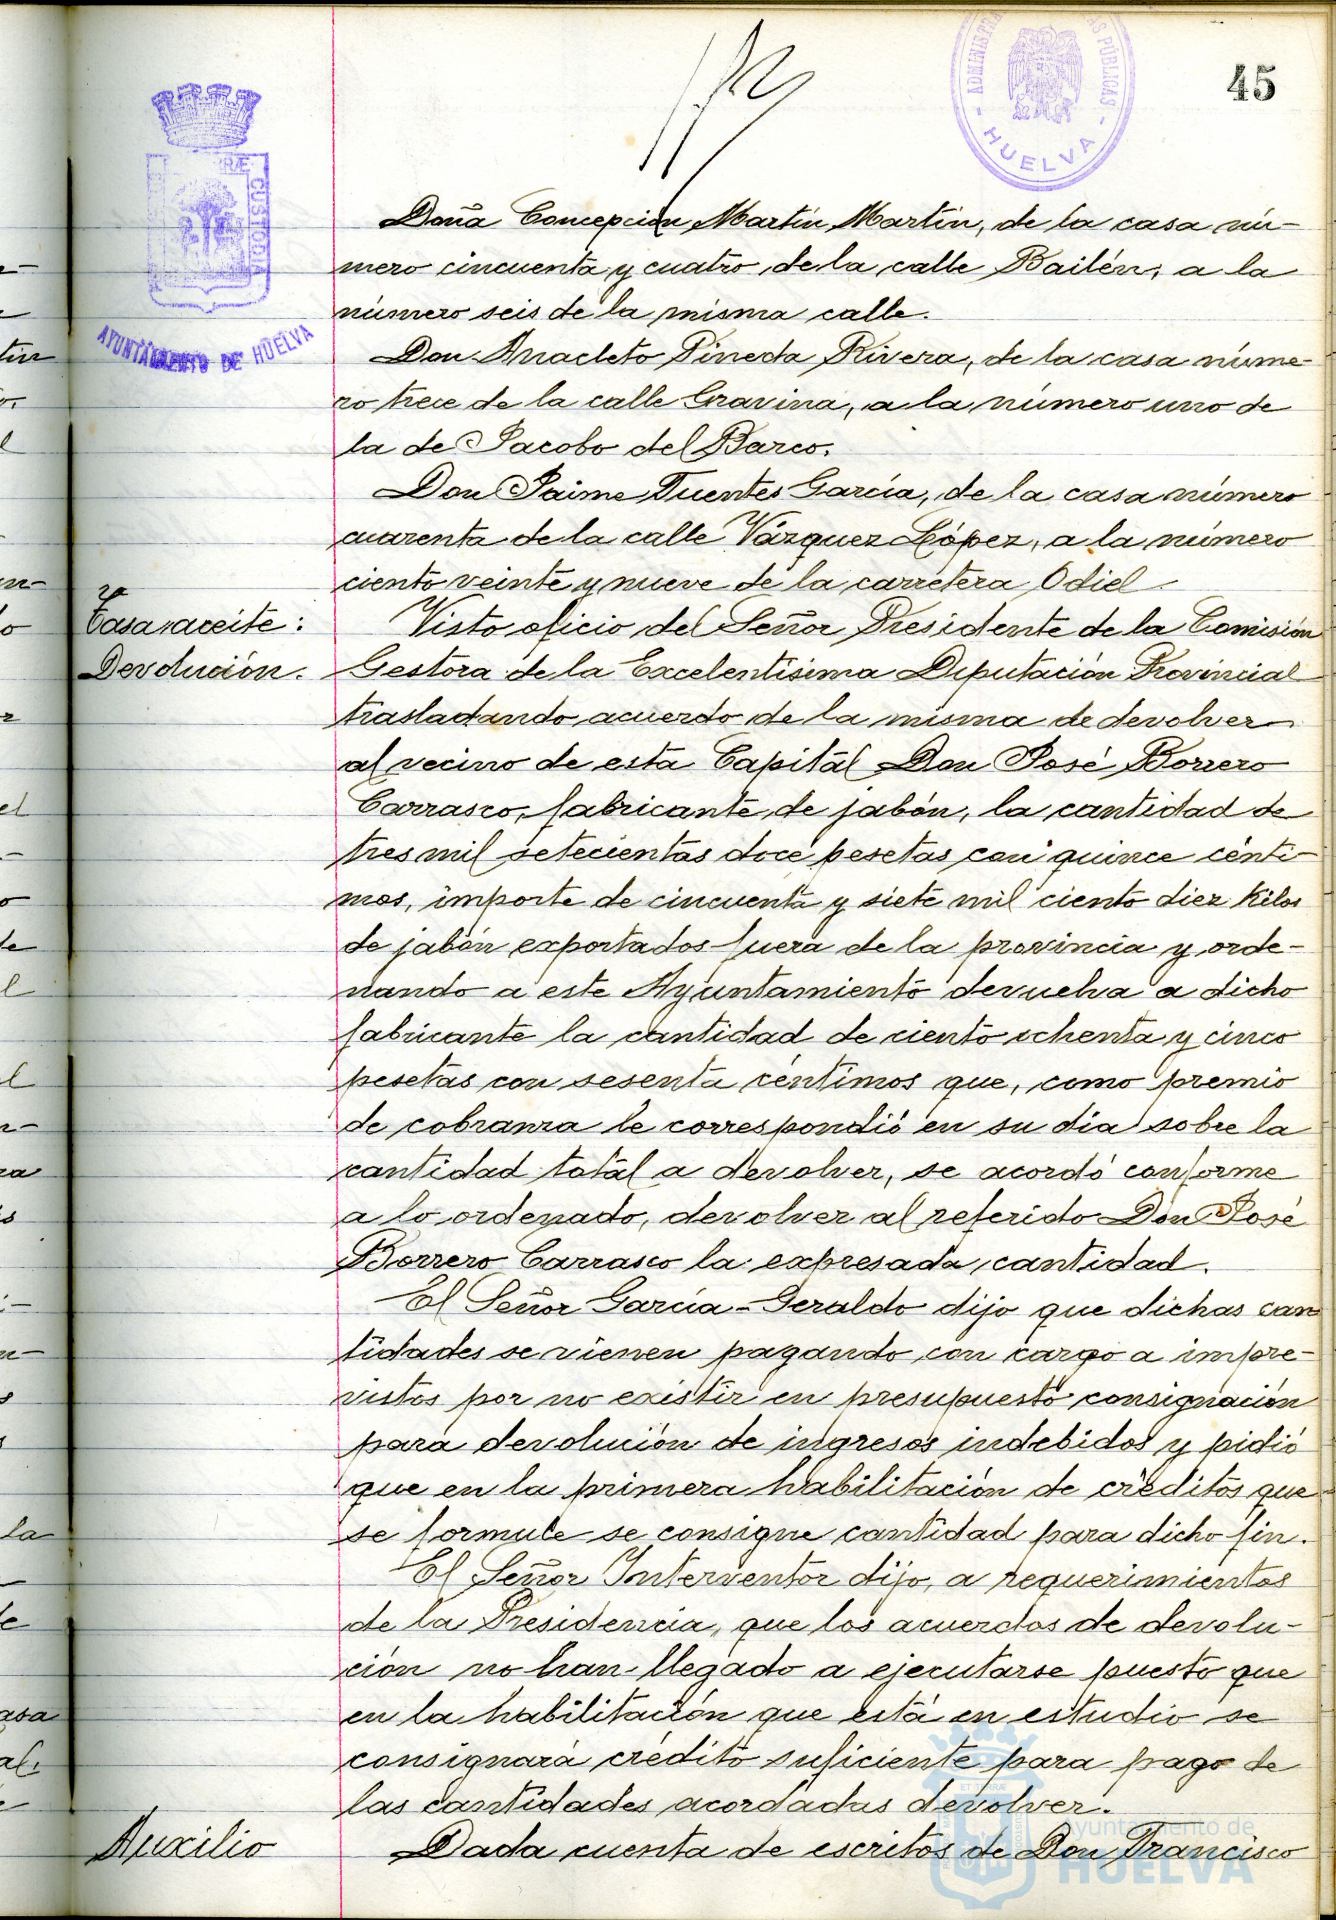 45
ADMINISTRA PÚBLICAS
- HUELVA -
RÆ CUSTODIA
AYUNTAMIENTO DE HUELVA
Doña Concepción Martín Martín, de la casa nú-
mero cincuenta y cuatro de la calle Bailén, a la
número seis de la misma calle.
Don Anacleto Pineda Rivera, de la casa núme-
ro trece de la calle Gravina, a la número uno de
la de Jacobo del Barco.
Don Jaime Fuentes García, de la casa número
cuarenta de la calle Vázquez López, a la número
ciento veinte y nueve de la carretera Odiel.
Tasa aceite:
Devolución.
Visto oficio del Señor Presidente de la Comisión
Gestora de la Excelentísima Diputación Provincial
trasladando acuerdo de la misma de devolver
al vecino de esta Capital Don José Borrero
Carrasco, fabricante de jabón, la cantidad de
tres mil setecientas doce pesetas con quince cénti-
mos, importe de cincuenta y siete mil ciento diez kilos
de jabón exportados fuera de la provincia y orde-
nando a este Ayuntamiento devuelva a dicho
fabricante la cantidad de ciento ochenta y cinco
pesetas con sesenta céntimos que, como premio
de cobranza le correspondió en su día sobre la
cantidad total a devolver, se acordó conforme
a lo ordenado, devolver al referido Don José
Borrero Carrasco la expresada cantidad.
El Señor García-Geraldo dijo que dichas can
tidades se vienen pagando con cargo a impre-
vistos por no existir en presupuesto consignación
para devolución de ingresos indebidos y pidió
que en la primera habilitación de créditos que
se formule se consigne cantidad para dicho fin.
El Señor Interventor dijo, a requerimientos
de la Presidencia, que los acuerdos de devolu-
ción no han llegado a ejecutarse puesto que
en la habilitación que está en estudio se
consignará crédito suficiente para pago de
las cantidades acordadas devolver.
Auxilio
Dada cuenta de escritos de Don Francisco
Ayuntamiento de
HUELVA